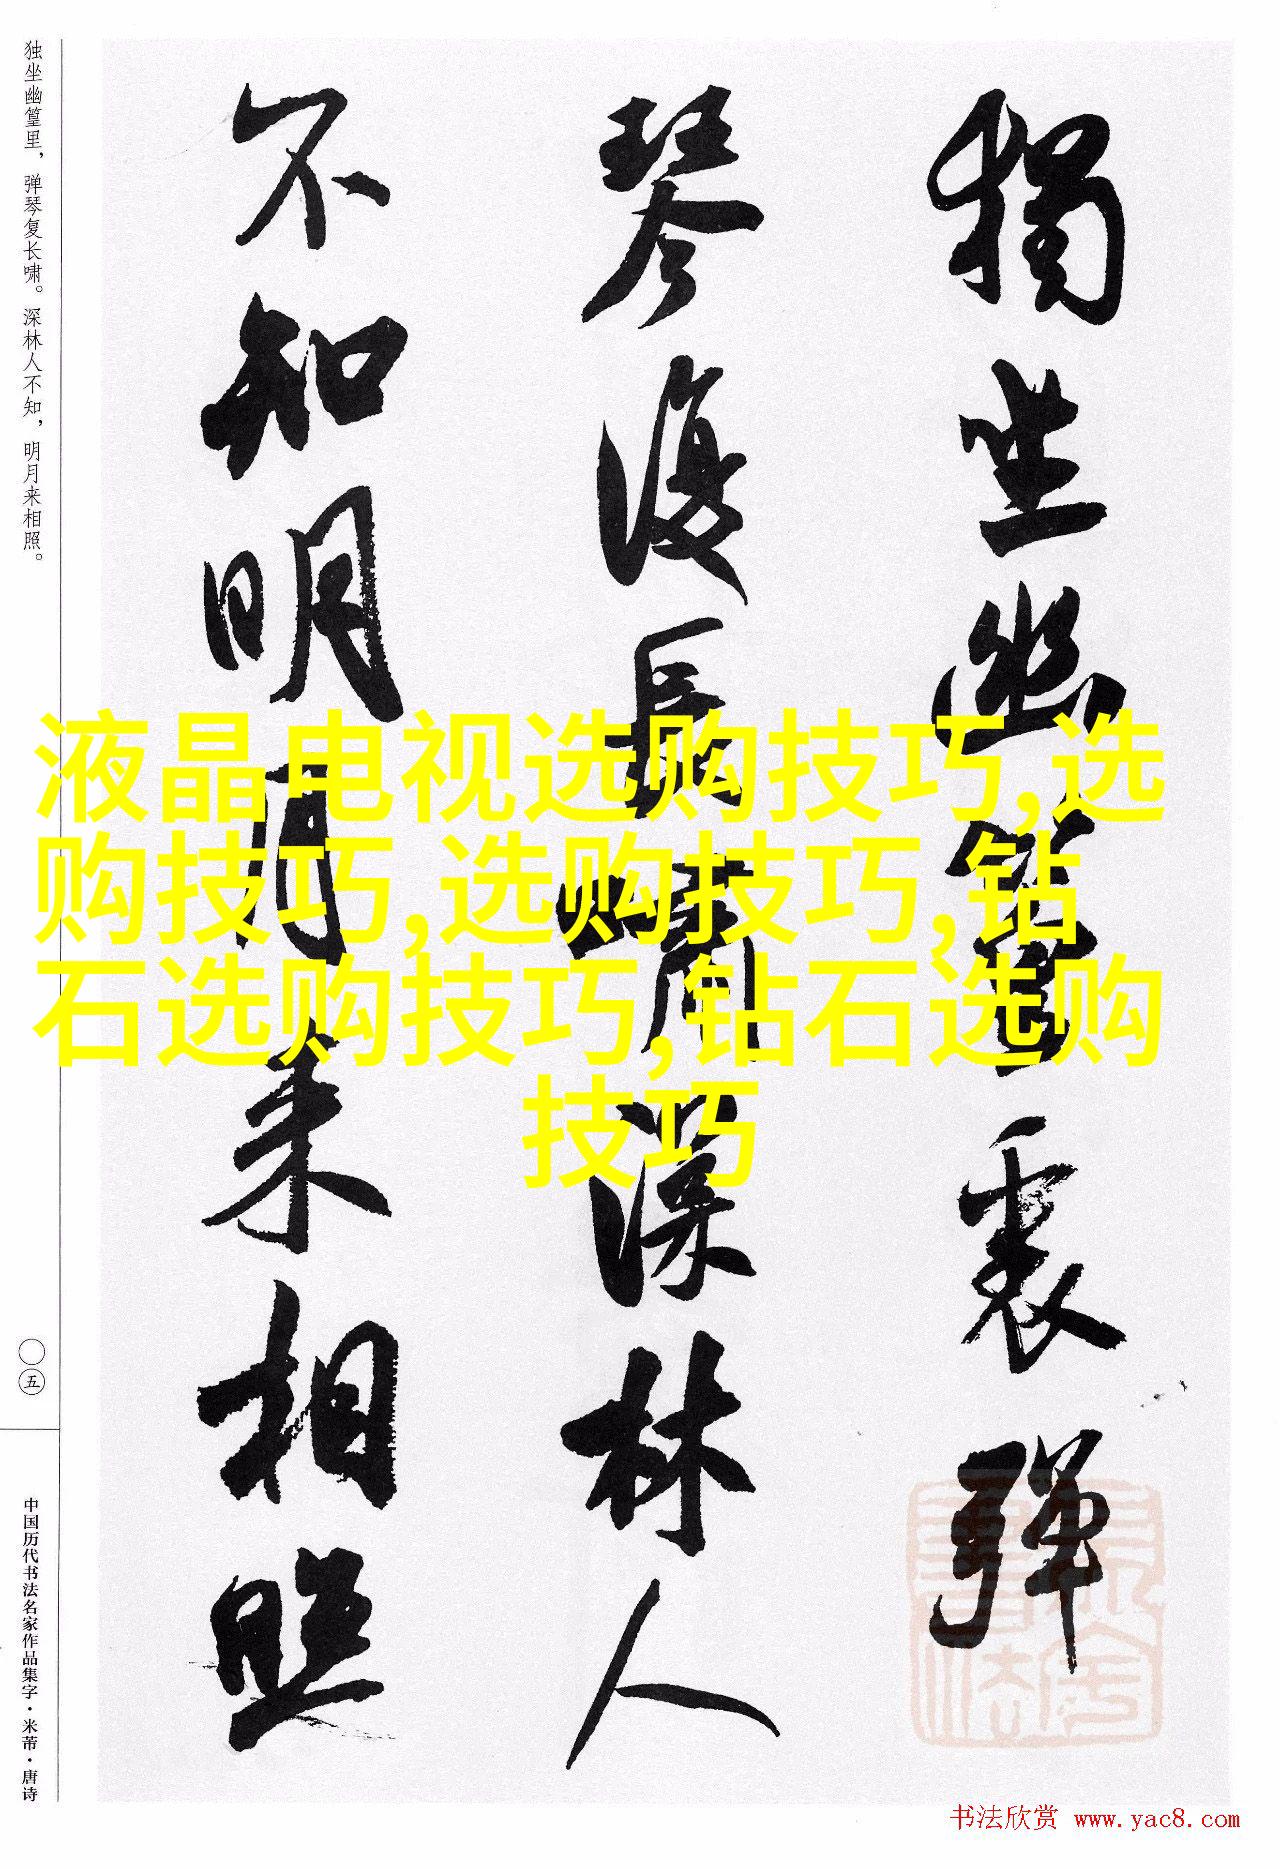 獨坐幽篁裏彈
琴復長嘯深林人
不知明月来相照
独坐幽篁里，弹琴复长啸。深林人不知，明月来相照。
〇五
中国历代书法名家作品集字·米芾·唐诗
液晶电视选购技巧,选
购技巧,选购技巧,钻
石选购技巧,钻石选购
技巧
书法欣赏 www.yac8.com